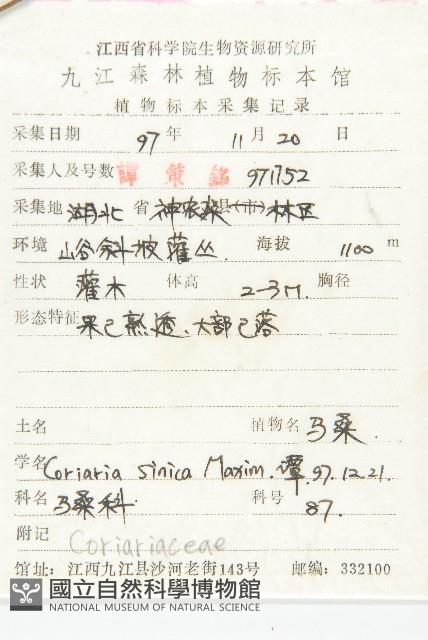 江西省科学院生物资源研究所
九江森林植物标本馆
植物标本采集记录
采集日期 97 年 11 月 20 日
采集人及号数 譚策銘 971752
采集地 湖北 省 神农架 县(市) 林区
环境 山谷斜坡灌丛 海拔 1100 m
性状 灌木 体高 2-3m. 胸径
形态特征 果已熟透、大部已落
土名 植物名 马桑.
学名 Coriaria sinica Maxim. 譚 97.12.21.
科名 马桑科 科号 87.
附记 Coriariaceae
馆址: 江西九江县沙河老街143号 邮编: 332100
國立自然科學博物館
NATIONAL MUSEUM OF NATURAL SCIENCE